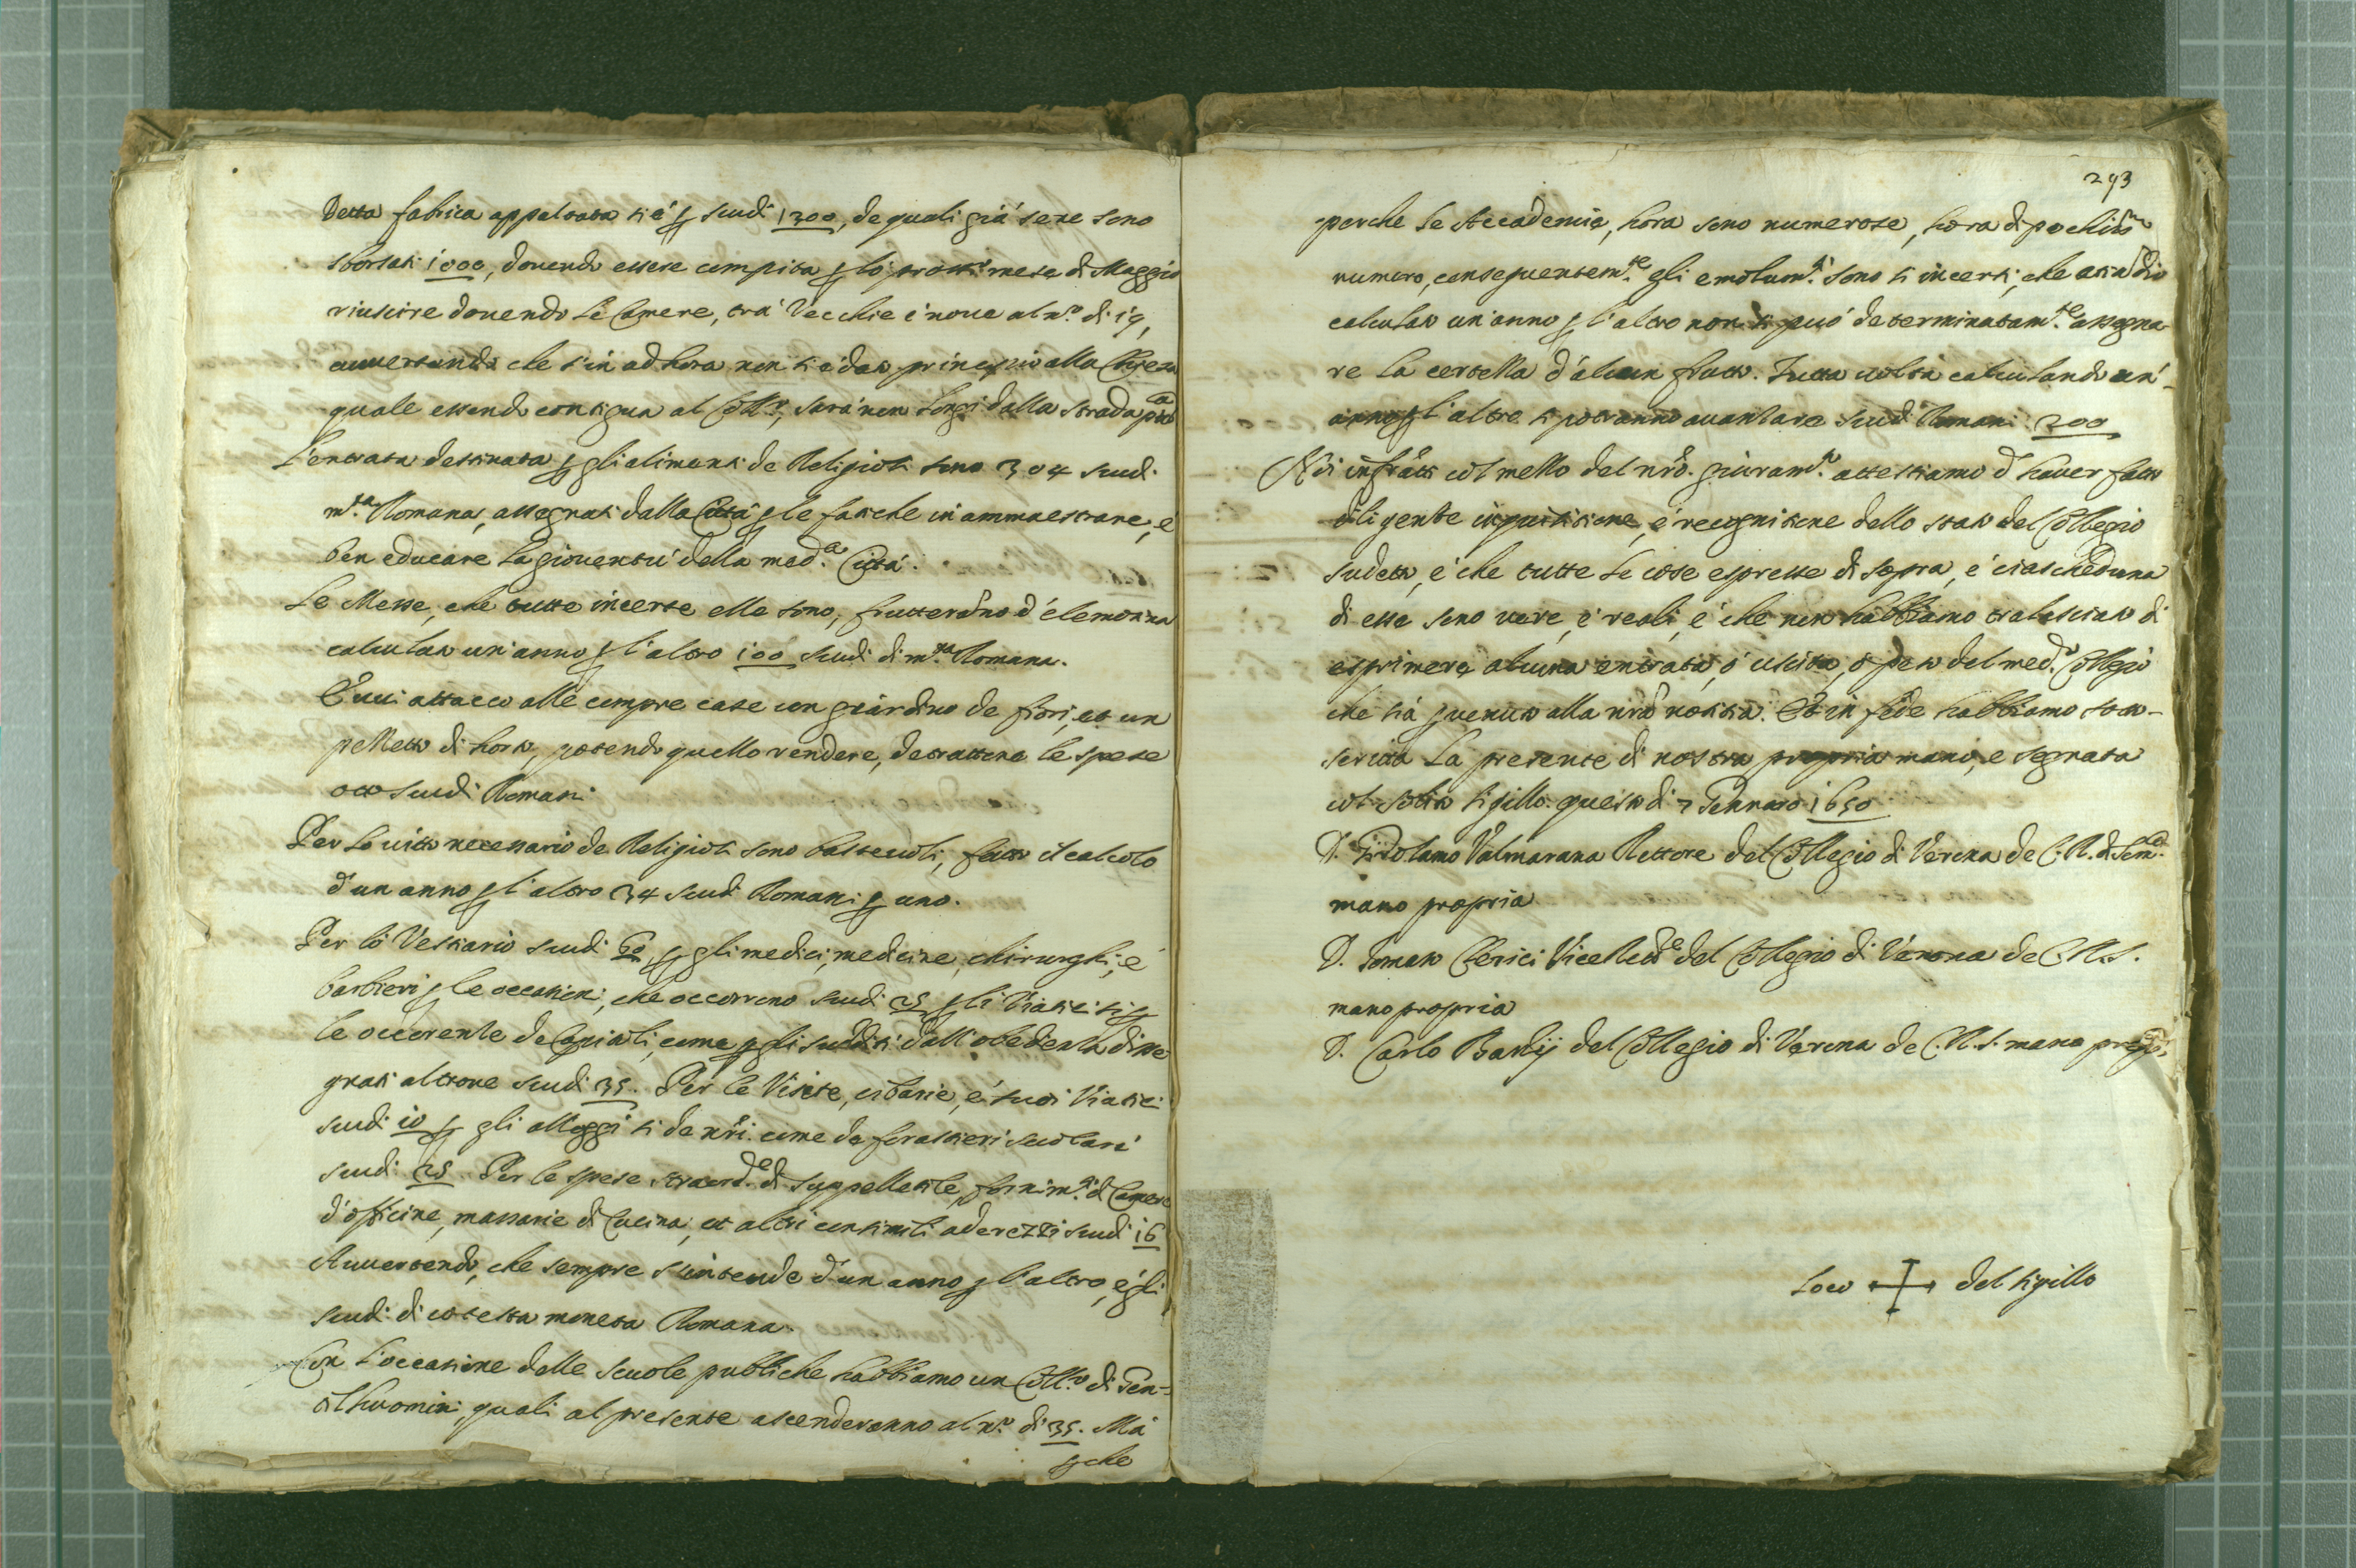 Detta fabrica appaltata si è p scudi 1300, de quali già sene sono
sborsati 1000, dovendo essere compita p lo pross.º mese di Maggio
riuscire dovendo le Camere, trà Vecchie è nove al n.º di 19,
avvertendo che sin ad hora non si è dato principio alla Chiesa
quale essendo contigua al Coll.º, sarà non longi dalla strada pub.ca
L'entrata destinata p gli alimenti de Religiosi sono 304 scudi
m.ta Romana, assegnati dalla Città p le fatiche in ammaestrare, è
ben educare la gioventù della med.a Città.
Le Messe, che tutte incerte elle sono, frutterãno d'elemosina
calculato un'anno p l'altro 100 scudi di m.ta Romana.
È vvi attacco alle compre case con giardino de fiori, et un
pezzetto di horto, potendo quello rendere, detrattone le spese
otto scudi Romani
Per lo vitto necessario de Religiosi sono bastevoli, fatto il calcolo
d'un anno p l'altro 34 scudi Romani p uno.
Per lo Vestiario scudi 60, p gli medici, medicine, chirurghi, è
barbieri p le occasioni, che occorrono scudi 25 p li Viatici si p
le occorenze de Capitoli, come p gli sudditi dall'obedienza disse
grati altrove scudi 35. Per le Visite, cibarie, è suoi Viatici
scudi 10 p gli alloggi si de nr̃i come da forastieri secolari
scudi 25. Per le spese straord.e di suppellettile, fornim.ti di Camere
d'officine, massarie di Cucina, et altri consimili aderezzi scudi 16
Avvertendo, che sempre s'intende d'un anno p l'altro, è gli
scudi di cotesta moneta Romana.
Con l'occasione delle scuole publiche habbiamo un Coll.º di Gen-
tilhuomini, quali al presente ascenderanno al n.º di 35. Mà
p che
293
perche le Accademie, hora sono numerose, hora di pochiss.º
numero, conseguentem.te gli emolum.ti sono sì incerti, che
calculato un'anno p l'altro non si può determinatam.te assegna
re la certezza d'alcun frutto. Tutta volta calculando un'
anno p l'altro si potranno avanzare scudi Romani 200
Noi infratti col mezzo del nrõ. giuram.to attestiamo d'haver fatto
diligente inquisitione, è recognitione dello stato del Collegio
sudetto, è che tutte le cose espresse di sopra, è ciascheduna
di esse sono vere, è reali, è che non habbiamo tralasciato di
esprimere alcuna entrata, ò uscita, ò peso del med.º Collegio
che sia p venuto alla nrã notitia. Et in fede habbiamo sotto-
scritto la presente di nostra propria mano, e segnata
col solito sigillo questo di 7 Gennaro 1650
D. Girolamo Valmarana Rettore del Collegio di Verona de C. R. di Som.ca
mano propria
D. Tomaso Clerici Vice Rett.e del Collegio di Verona de C. R. S.
mano propria
D. Carlo Bardij del Collegio di Verona de C. R. S. mano prop.a
Loco del sigillo